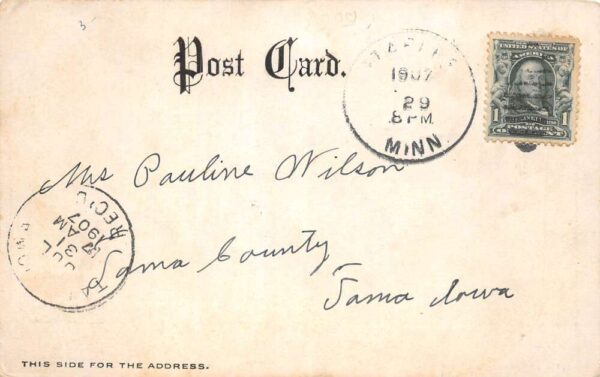 Post Card.
1907
29
8 PM
MINN
UNITED STATES OF AMERICA
1 1
POSTAGE
Mrs Pauline Wilson
REC'D
JUL
31
7 AM
1907
IOWA
Tama County
Tama Iowa
THIS SIDE FOR THE ADDRESS.